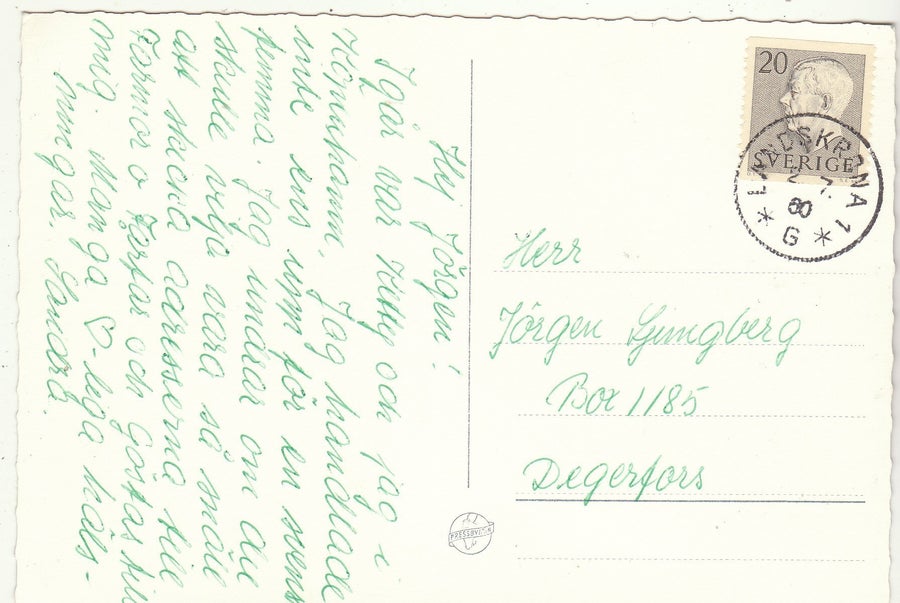 Hej Jörgen!
Igår var Kelly och jag i
Köpenhamn. Jag handlade
inte ens upp för en svensk
femma. Jag undrar om du
skulle vilja vara så snäll
att skicka adresserna till
Farmor o Farfar och Göstas till
mig. Många ♡-liga häls-
ningar. Sandra.
20
SVERIGE
LANDSKRONA 1
2 7. 60
* G *
Herr
Jörgen Ljungberg
Box 1185
Degerfors
PRESSBYRÅN